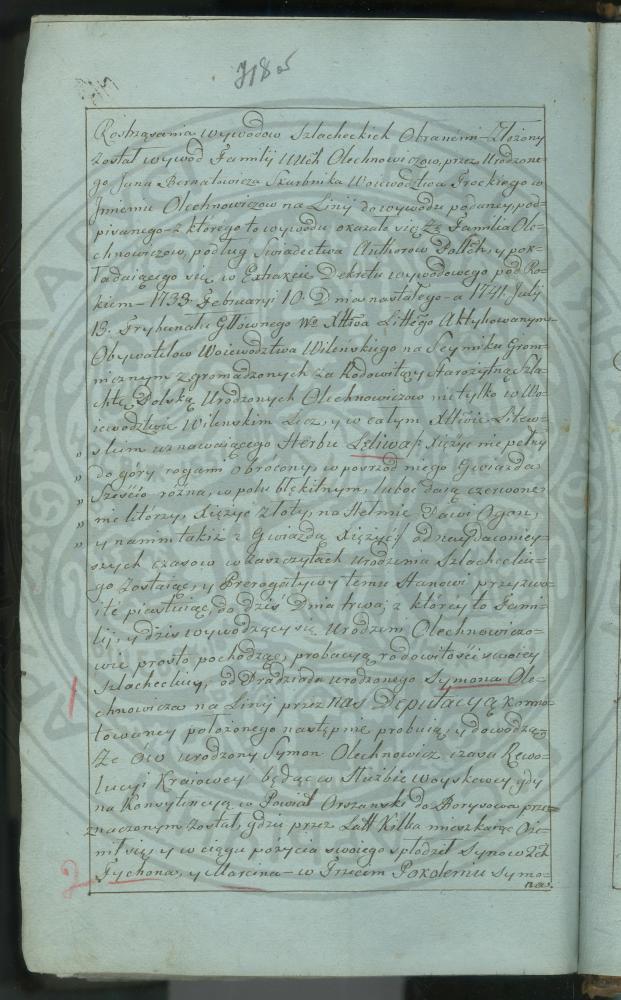 718 v
Rostrząsania wywodow Szlacheckich Obranémi – Złożony
został wywód Familij WUch Olechnowiczow, przez Urodzone=
go Jana Bernatowicza Skarbnika Woiewodztwa Trockiego w
Jmieniu Olechnowiczow na Linij do wywodu podaney, pod=
pisanego – z którego to wywodu okazało się, Że Familia Ole=
chnowiczow, podług Swiadectwa Authorow Polłch, y pok=
ładaiącego się w Extrakcie Dekretu wywodowego pod Ro=
kiem – 1733. Februaryi 10. Dnia nastałego – a 1741. Julij
13. Trybunału Głłownego Wo Xttwa Littego Aktykowanym=
Obywatelow Woiewodztwa Wileńskiego na Seymiku Grom=
nicznym zgromadzonych, za Rodowitą y Starożytną Szla=
chtę Polską Urodzonych Olechnowiczow nie tylko w Wo=
iewodztwie Wilenskim Lecz, y w całym Xttwie Litew=
skim uznawaiącego Herbu Leliwa /: Xiężyc nie pełny
do góry rogami obrócony, w pośrzód niego Gwiazda
Sześcio rożna, w polu błękitnym, lubo daią czerwone
nie ktorzy, Xiężyc złoty, na Helmie Pawi Ogon,
y na nim takiż z Gwiazdą Xiężyc :/ od naydawniey=
szych czasow w Zaszczytach Urodzenia Szlacheckie=
go zostaiąc, y Prerogatywy temu Stanowi przyzwo=
ite piastuiąc, do dziś Dnia trwa; z którey to Fami=
lij, y dziś wywodzący się Urodzeni Olechnowiczo=
wie prosto pochodzą, probacyą rodowitości swoiey
Szlacheckiey, od Pradziada urodzonego Symona Ole=
chnowicza na Linij przez nas Deputacyą konno=
towaney położonego następnie probuią, y dowodzą
Że ów urodzony Symon Olechnowicz czasu Rewo=
lucyi Kraiowey będąc w Służbie woyskowey gdy
na Konsystencyą w Powiat Orszański do Borysowa prze=
znaczonym został, gdzie przez Latt Kilka mieszkaiąc Oże=
nił się, y w ciągu pożycia swoiego spłodził Synow 2ch
Tychona, y Marcina – w Trzecim Pokoleniu Symo=
na.
1
2